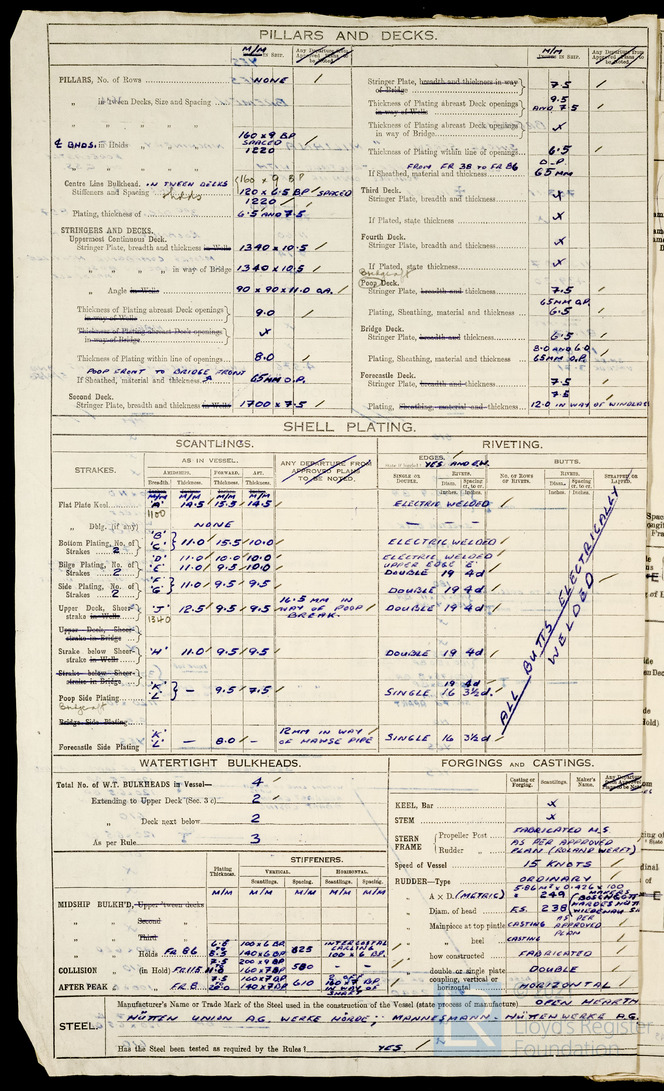 PILLARS AND DECKS.
M/M
IN SHIP.
Any Departure from Approved Plans to be Noted.
PILLARS, No. of Rows NONE
„ in 'tween Decks, Size and Spacing
„ „ „
℄ BHDS. in Holds 160 x 9 BP SPACED 1220
„ „
(160 x 9 BP
Centre Line Bulkhead. IN TWEEN DECKS
Stiffeners and Spacing 120 x 6.5 BP SPACED 1220
Plating, thickness of 6.5 AND 7.5
STRINGERS AND DECKS.
Uppermost Continuous Deck.
Stringer Plate, breadth and thickness in Wells 1340 x 10.5
„ „ „ in way of Bridge 1340 x 10.5
„ Angle in Wells 90 x 90 x 11.0 O.A.
Thickness of Plating abreast Deck openings in way of Wells 9.0
Thickness of Plating abreast Deck openings in way of Bridge x
Thickness of Plating within line of openings 8.0
POOP FRONT TO BRIDGE FRONT
If Sheathed, material and thickness 65MM O.P.
Second Deck.
Stringer Plate, breadth and thickness in Wells 1700 x 7.5
M/M
IN SHIP.
Any Departure from Approved Plans to be Noted.
Stringer Plate, breadth and thickness in way of Bridge 7.5
Thickness of Plating abreast Deck openings in way of Wells 9.5 AND 7.5
Thickness of Plating abreast Deck openings in way of Bridge x
Thickness of Plating within line of openings 6.5
FROM FR 38 TO FR 86
If Sheathed, material and thickness O.P. 65MM
Third Deck.
Stringer Plate, breadth and thickness x
If Plated, state thickness x
Fourth Deck.
Stringer Plate, breadth and thickness x
If Plated, state thickness x
Poop Deck.
Stringer Plate, breadth and thickness 7.5
Plating, Sheathing, material and thickness 65MM O.P. 6.5
Bridge Deck.
Stringer Plate, breadth and thickness 6.5
Plating, Sheathing, material and thickness 8.0 AND 6.0 65MM O.P.
Forecastle Deck.
Stringer Plate, breadth and thickness 7.5
Plating, Sheathing, material and thickness 7.5 12.0 IN WAY OF WINDLASS
SHELL PLATING.
SCANTLINGS.
RIVETING.
STRAKES.
AS IN VESSEL.
AMIDSHIPS. FORWARD. AFT.
Breadth. Thickness. Thickness. Thickness.
M/M M/M M/M M/M
ANY DEPARTURE FROM APPROVED PLANS TO BE NOTED.
EDGES. YES AND EW.
SINGLE OR DOUBLE.
RIVETS.
Diam. Inches. Spacing cr. to cr. Inches.
BUTTS.
No. of ROWS OF RIVETS.
RIVETS.
Diam. Inches. Spacing cr. to cr. Inches.
STRAPPED OR LAPPED.
Flat Plate Keel 'A' 1100 14.5 15.5 14.5 ELECTRIC WELDED
„ Dblg. (if any) NONE — — —
Bottom Plating, No. of Strakes 2 'B' 'C' 11.0 15.5 10.0 ELECTRIC WELDED
Bilge Plating, No. of Strakes 2 'D' 11.0 10.0 10.0 ELECTRIC WELDED
'E' 11.0 9.5 10.0 UPPER EDGE 'E' DOUBLE 19 4d
Side Plating, No. of Strakes 2 'F' 'G' 11.0 9.5 9.5 DOUBLE 19 4d
Upper Deck, Sheer strake in Wells 'J' 1340 12.5 9.5 9.5 16.5 MM IN WAY OF POOP BREAK. DOUBLE 19 4d
Upper Deck, Sheer strake in Bridge
Strake below Sheer strake in Wells 'H' 11.0 9.5 9.5 DOUBLE 19 4d
Strake below Sheer strake in Bridge
Poop Side Plating 'K' 'L' — 9.5 7.5 19 4d
SINGLE 16 3½d.
Bridge Side Plating
Forecastle Side Plating 'K' 'L' — 8.0 — 12MM IN WAY OF HAWSE PIPE SINGLE 16 3½d.
ALL BUTTS ELECTRICALLY WELDED
WATERTIGHT BULKHEADS.
Total No. of W.T. BULKHEADS in Vessel— 4
Extending to Upper Deck (Sec. 3 c) 2
„ Deck next below 2
As per Rule 3
Plating Thickness.
STIFFENERS.
VERTICAL. HORIZONTAL.
Scantlings. Spacing. Scantlings. Spacing.
M/M M/M M/M M/M M/M
MIDSHIP BULKH'D, Upper 'tween decks
„ „ Second
„ „ Third
„ „ Holds FR 86 6.5 8.5 100 x 6 BP 140 x 6 BP 825 INTERCOSTAL CARLING 100 x 6 BP.
COLLISION „ (in Hold) FR 115 7.5 11.0 200 x 9 BP 160 x 7 BP 580 — —
AFTER PEAK „ FR 8 7.5 160 x 7 BP 140 x 7 BP 610 IN WAY OF SHAFT
FORGINGS AND CASTINGS.
Casting or Forging. Scantlings. Maker's Name. Any Departure from Approved Plans to be Noted
KEEL, Bar x
STEM x
STERN FRAME { Propeller Post FABRICATED M.S.
Rudder „ AS PER APPROVED PLAN (ROLAND WERFT)
Speed of Vessel 15 KNOTS
RUDDER—Type ORDINARY
„ A x D. (METRIC) 5.86 M² x 0.426 x 100 = 249
„ Diam. of head F.S. 238
„ Mainpiece at top pintle CASTING AS PER APPROVED PLAN
„ „ heel CASTING
„ how constructed FABRICATED
„ double or single plate DOUBLE
„ coupling, vertical or horizontal HORIZONTAL
STEEL.
Manufacturer's Name or Trade Mark of the Steel used in the construction of the Vessel (state process of manufacture) OPEN HEARTH
HÜTTEN UNION A.G. WERKE HÖRDE; MANNESMANN-HÜTTENWERKE A.G.
Has the Steel been tested as required by the Rules? YES
Lloyd's Register
Foundation